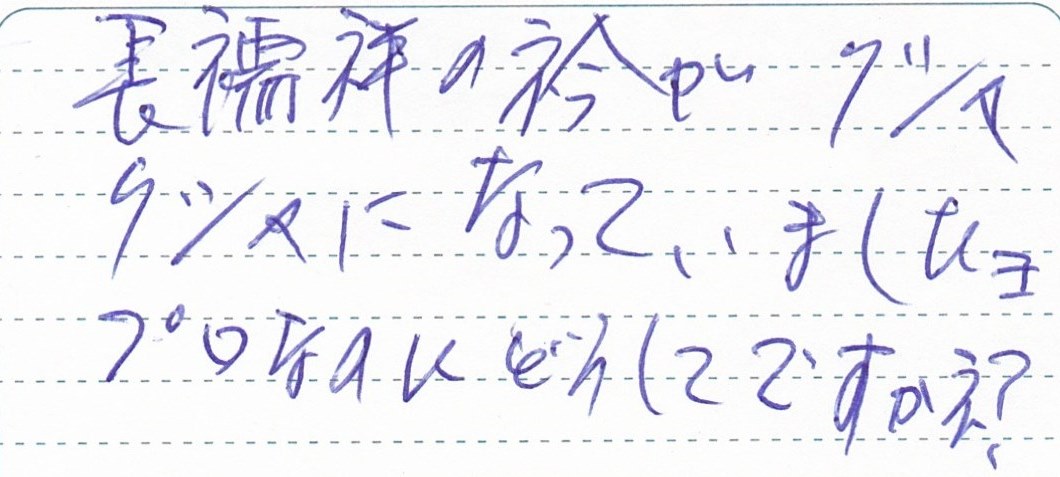 長襦袢の衿がグシャ
グシャになっていましたヨ
プロなのにどうしてですかネ?